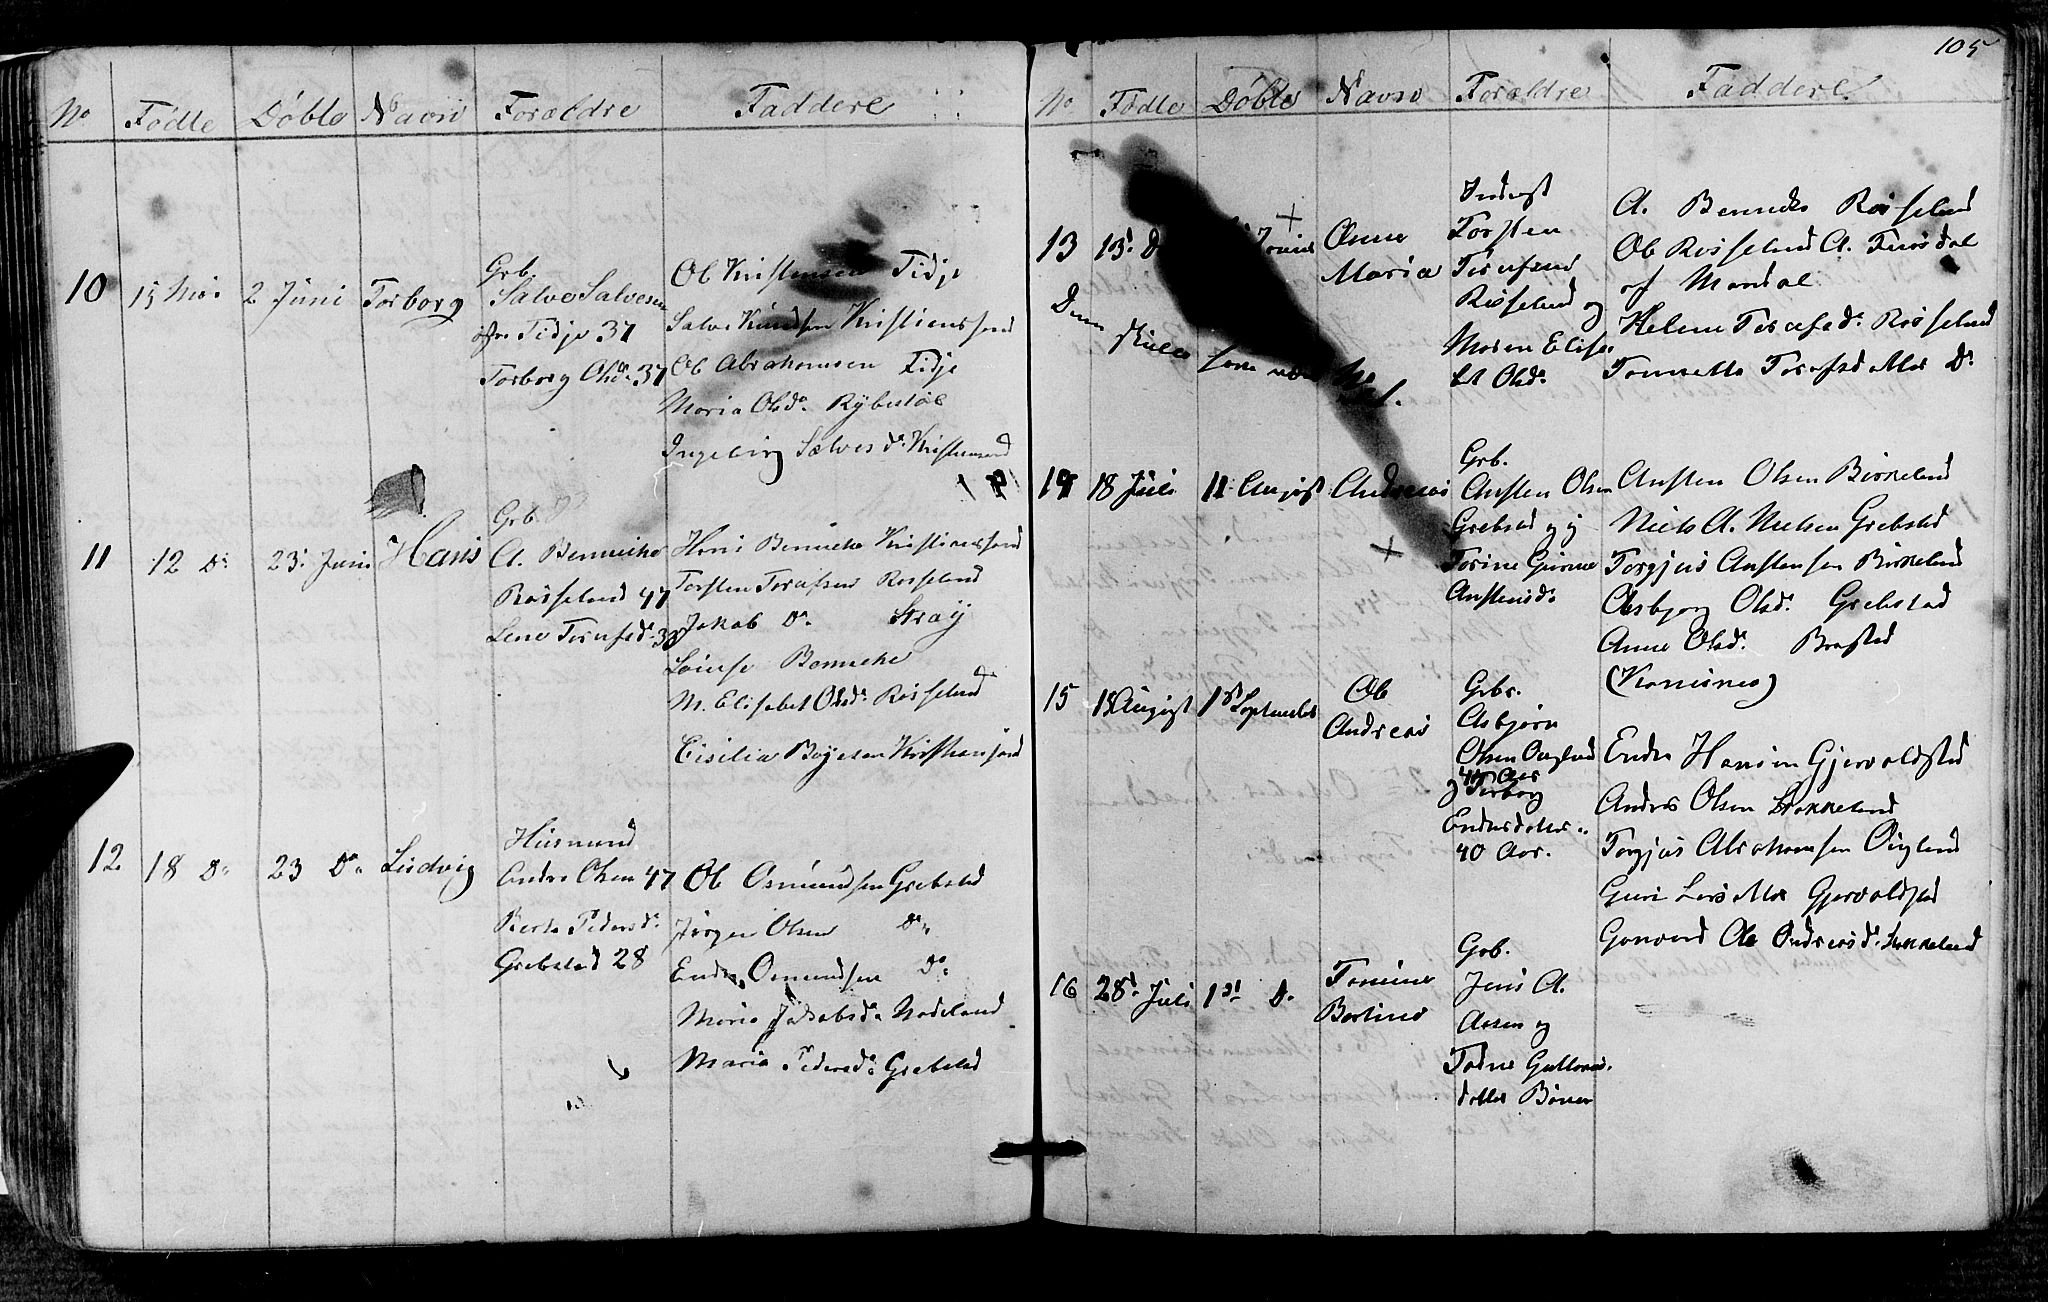 105
No Fødte Døbte Navn Forældre Faddere
10 15 Mai 2 Juni Torborg
Grb.
Salve Salvesen
Øfre Tidje 37
Torborg Olsdr 37
Ol Kristensen Tidje
Salve Knudsen Kristiansand
Ol Abrahamsen Tidje
Maria Olsdr. Rybestøl
Ingeborg Salvesdr. Kristiansand
11 12 Do 23. Juni Hans
Grb.
A. Benneche
Rosseland 47
Lene Torufsdr. 33
Hans Benneche Kristiansand
Torsten Torufsen Rosseland
Jakob Do. Straÿ
Louise Benneche
M. Elisabet Olsdr. Rosseland
Cisilia Bojesen Kristiansand
12 18 Do 23 Do. Ludvig
Husmand
Andrs Olsen 47
Berte Pedersdr.
Grebstad 28
Ol Osmundsen Grebstad
Jørgen Olsen Do.
Endre Osmundsen Do.
Maria Jakobsdr. Nodeland
Maria Pedersdr. Grebstad
No Fødte Døbte Navn Forældre Faddere
13 13. Juni Anne
Maria
Inderst
Torsten
Torufsen
Rosseland og
Maren Elisa-
bet Olsdr.
A. Benneche Rosseland
Ol Rosseland A. Tursdal
af Mandal
Helene Torufsdr. Rosseland
Tomette Torufsd Mor Do.
14 18 Juli 11 August Andreas
Grb.
Austen Olsen
Grebstad og
Torine Gurine
Austensdr.
Austen Olsen Birkeland
Niels A. Nielsen Grebstad
Torgjus Austensen Birkeland
Asbjorg Olsdr. Grebstad
Anne Olsdr. Brastad
15 18 August 1st September Ol
Andreas
Grbr.
Asbjørn
Olsen Augland
44 Aar
og Torborg
Endresdatter
40 Aar.
Endre Hansen Gjervoldstad
Andreas Olsen Stokkeland
Torgjus Abrahamsen Augland
Guri Lars Mor Gjervoldstad
16 28. Juli 1st Do. Tomine
Bertine
Grb.
Jens A.
Aasen og
Todne Gullovs-
datter Bønen